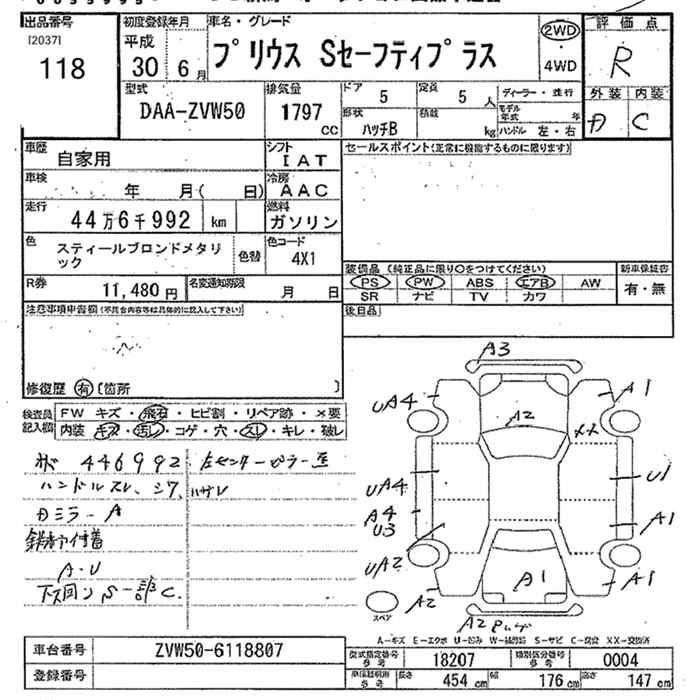 出品番号
[2037]
118
初度登録年月
平成
30 6月
車名・グレード
プリウス Sセーフティプラス
2WD
・
4WD
評価点
R
外装 内装
D C
型式
DAA-ZVW50
排気量
1797 cc
ドア
5
定員
5 人
形状
ハッチB
積載
kg
ディーラー・並行
モデル年式 年
ハンドル 左・右
車歴
自家用
シフト
IAT
車検
年 月( 日)
冷房
AAC
走行
44万6千992 km
燃料
ガソリン
色
スティールブロンドメタリック
色替
色コード
4X1
R券
11,480 円
名変通知期限
月 日
セールスポイント(正常に機能するものに限ります)
装備品 (純正品に限り○をつけてください)
PS PW ABS エアB AW
SR ナビ TV カワ
新車保証書
有・無
後日品
注意事項申告欄(不具合内容等は具体的に記入して下さい)
修復歴 有 [箇所 ]
検査員記入欄
FW キズ・飛石・ヒビ割・リペア跡・×要
内装 キズ・汚レ・コゲ・穴・スレ・キレ・破レ
446992
左センターピラー
ハンドルスレ、シワ、ハガレ
Dミラー A
A・U
下回り S 一部 C
A3
A1
UA4
A2
XX
UA4
U1
A4
U3
A1
UA2
A1
A1
A2
A2
スペア
A-キズ E-エクボ U-凹み W-補修跡 S-サビ C-腐食 XX-交換済
車台番号
ZVW50-6118807
登録番号
型式指定番号
参考
18207
類別区分番号
参考
0004
車検証明用
参考
長さ 454 cm
幅 176 cm
高さ 147 cm